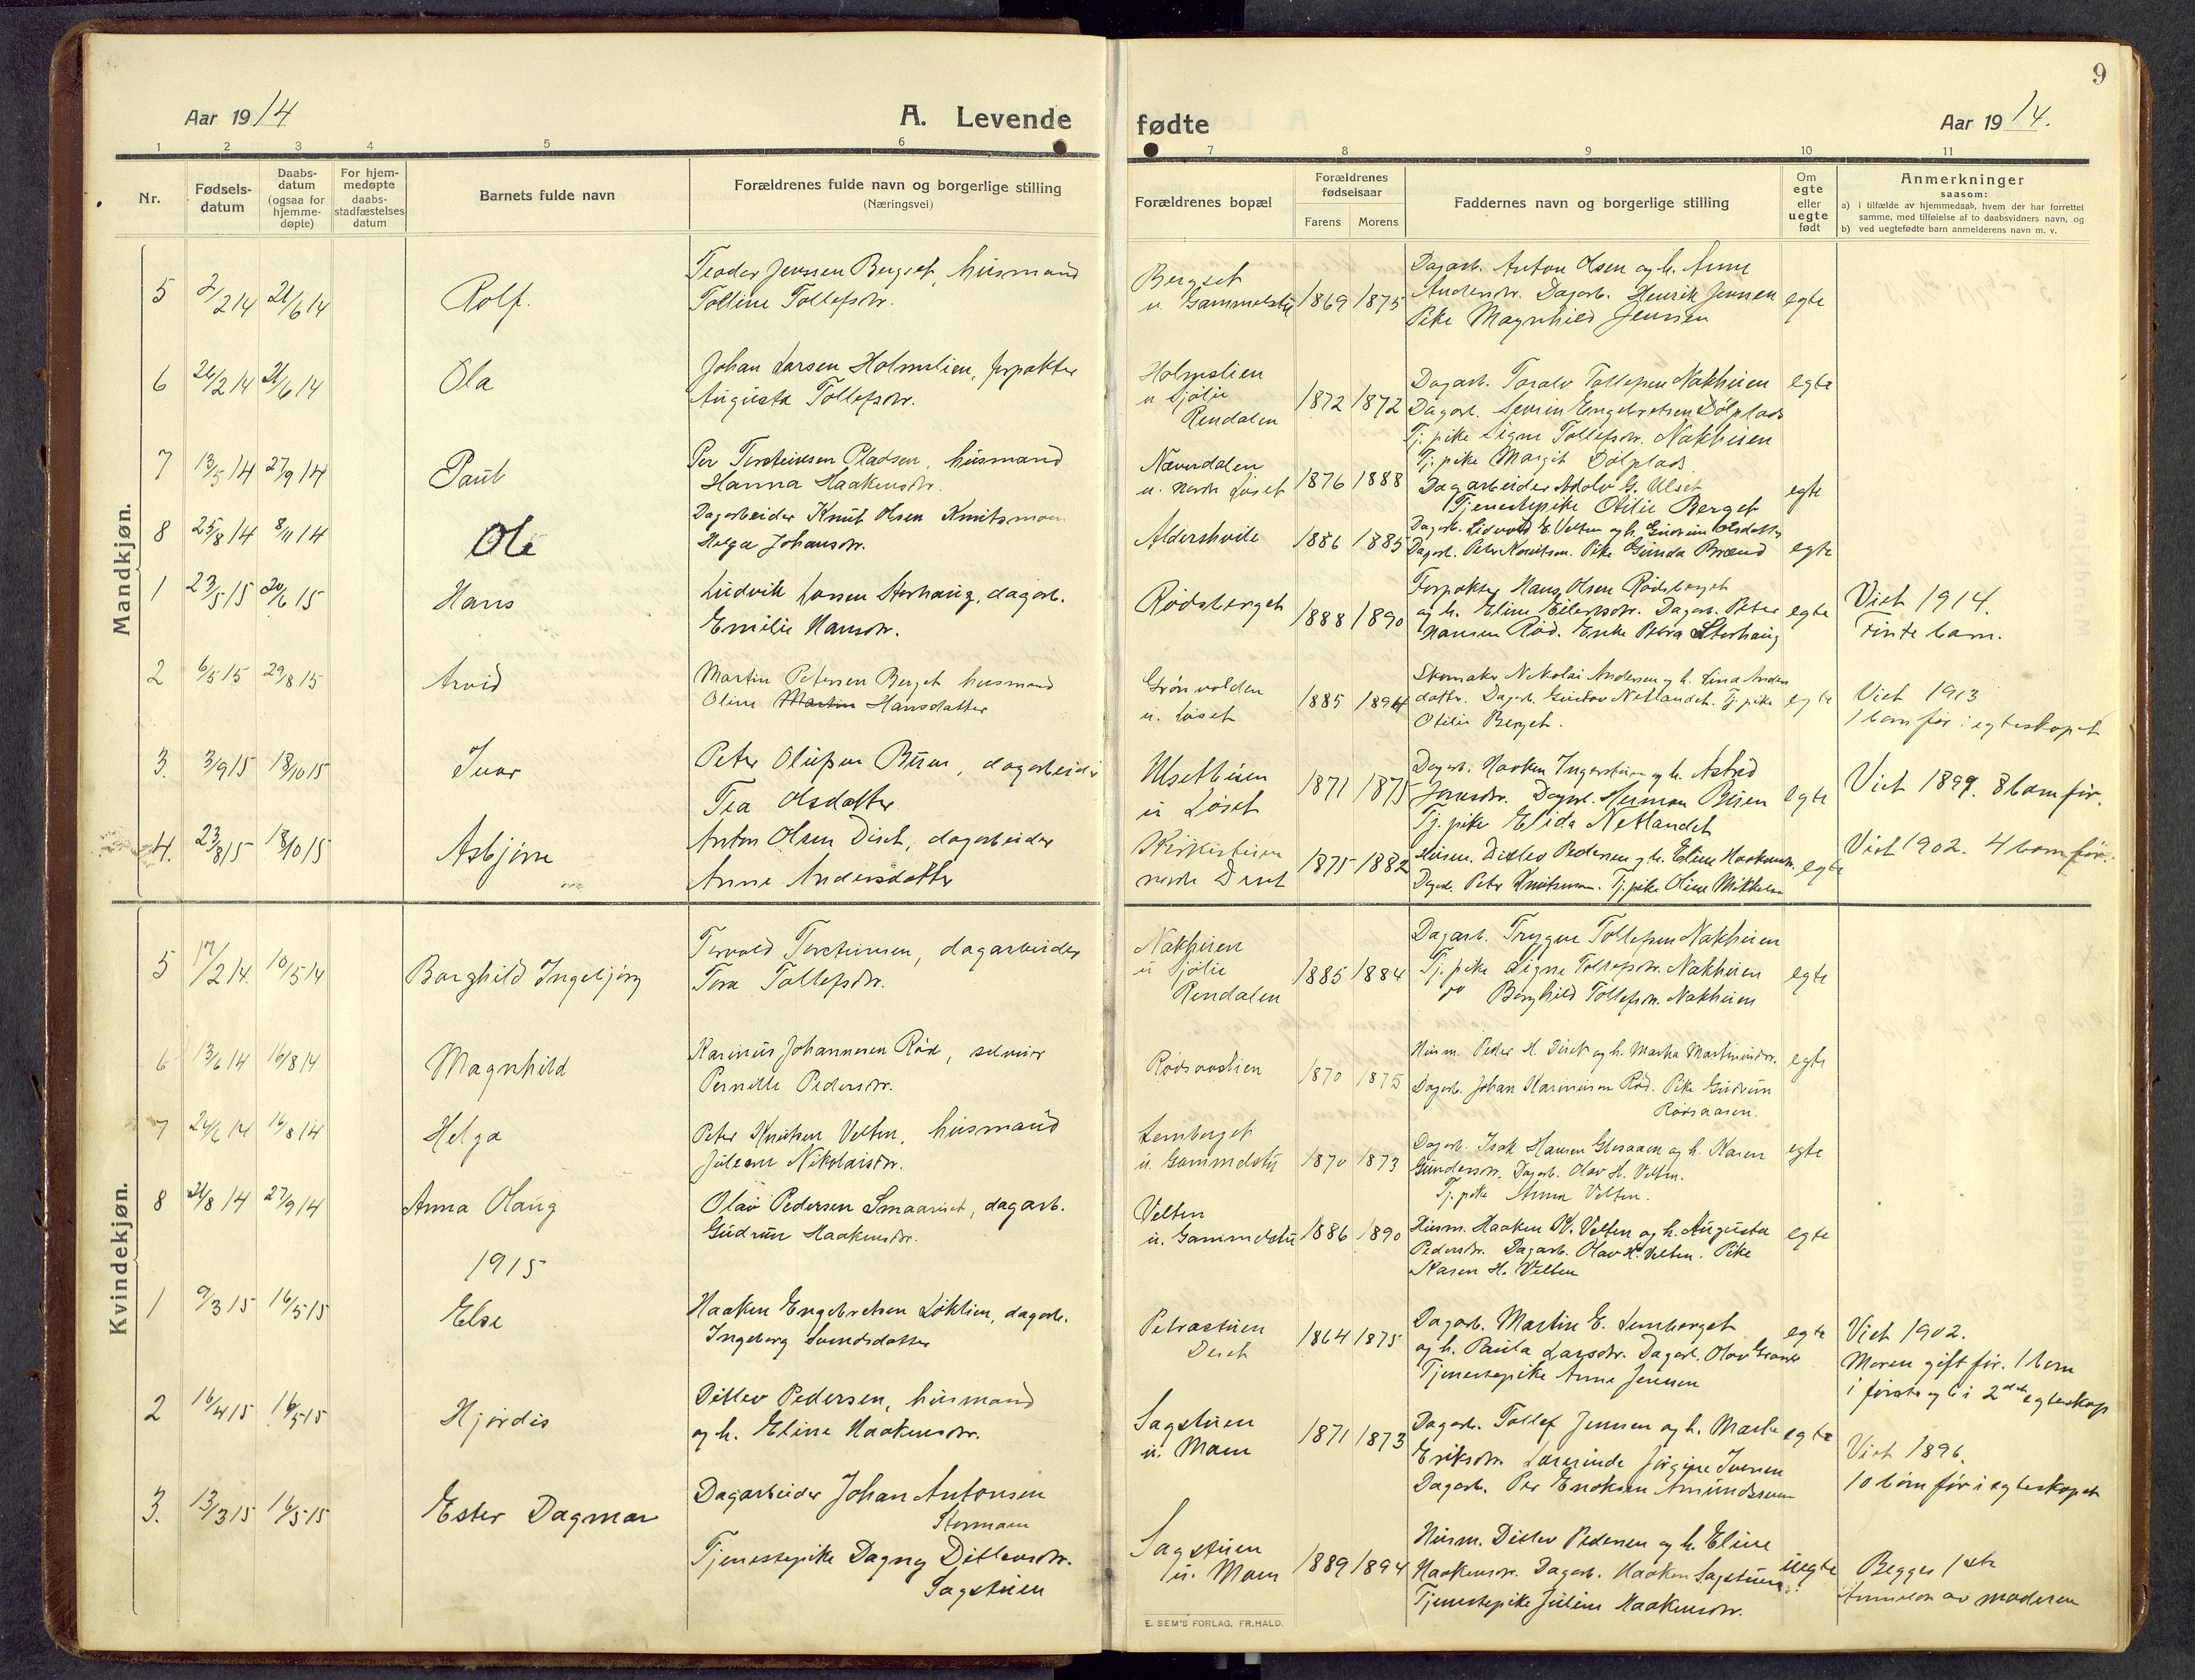 9
Aar 1914
A. Levende
fødte
Aar 1914.
1 2 3 4 5 6 7 8 9 10 11
Nr.
Fødsels-
datum
Daabs-
datum
(ogsaa for
hjemme-
døpte)
For hjem-
medøpte
daabs-
stadfæstelses
datum
Barnets fulde navn
Forældrenes fulde navn og borgerlige stilling
(Næringsvei)
Forældrenes bopæl
Forældrenes
fødselsaar
Farens Morens
Faddernes navn og borgerlige stilling
Om
egte
eller
uegte
født
Anmerkninger
saasom:
a) i tilfælde av hjemmedaab, hvem der har forrettet
samme, med tilføielse af to daabsvidners navn, og
b) ved uegtefødte barn anmelderens navn m. v.
Mandkjøn.
5 2/2 14 21/6 14 Rolf.
Teodor Jenssen Bergset, husmand
Talline Tollefsdtr.
Bergset
u. Gammelstu
1869 1875
Dagarb. Anton Olsen og h. Anne
Andersdtr. Dagarb. Henrik Jenssen
Pike Magnhild Jenssen
egte
6 26/2 14 21/6 14 Ola
Johan Larsen Holmslien, forpakter
Augusta Tollefsdtr.
Holmslien
u Sjølie
Rendalen
1872 1872
Dagarb. Toralv Tollefsen Nakhuen
Dagarb. Severin Engebretsen Dølplads
Tj. pike Signe Tollefsdtr. Nakhuen
Tj. pike Margit Dølplads
egte
7 13/5 14 27/9 14 Paul
Per Torsteinsen Pladsen, husmand
Hanna Haakensdtr.
Næverdalen
u. nordre Løset
1876 1888
Dagarbeider Adolv G. Ulset
Tjenestepike Otilie Berget
egte
8 25/8 14 8/11 14 Ole
Dagarbeider Knut Olsen Knutsmoen
Helga Johansdtr.
Aldershvile
1886 1885
Dagarb. Lidvold E. Velten og h. Gudrun Olsdatter
Dagarb. Peter Knutsen. Pike Gunda Brænd
egte
1 23/5 15 20/6 15 Hans
Ludvik Larsen Storhaug, dagarb.
Emilie Hansdtr.
Rødsberget
1888 1890
Forpakter Hans Olsen Rødsberget
og h. Eline Eilertsdtr. Dagarb. Peter
Hansen Rød. Enke Petra Storhaug
egte
Viet 1914.
Første barn.
2 6/5 15 29/8 15 Arvid
Martin Petersen Berget husmand
Oline Martin Hansdatter
Grønvolden
u. Løset
1885 1894
Skomaker Nikolai Andersen og h. Lina Anders
datter. Dagarb. Gustav Netlandet. Tj. pike
Otilie Berget.
egte
Viet 1913
1 barn før i egteskapet
3. 3/9 15 18/10 15 Ivar
Peter Olufsen Buen, dagarbeider
Tea Olsdatter
Ulsetbuen
u Løset
1871 1875
Dagarb. Haaken Ingerstuen og h. Astrid
Jonasdtr. Dagarb. Herman Buen
Tj. pike Elida Netlandet
egte
Viet 1899. 8 barn før.
4. 23/8 15 18/10 15 Asbjørn
Anton Olsen Diset, dagarbeider
Anne Andersdatter
nordre Deset
1875 1882
Husm. Ditlev Pedersen og h. Eline Haakensdtr.
Dagarb. Peter Knutsmoen. Tj. pike Oline Mikkelsen
egte
Viet 1902. 4 barn før.
Kvindekjøn.
5 17/2 14. 10/5 14 Borghild Ingebjørg
Torvald Torsteinsen, dagarbeider
Tora Tollefsdtr.
Nakhuen
u Sjølie
Rendalen
1885 1884
Dagarb. Trygve Tollefsen Nakhuen
Tj. pike Signe Tollefsdtr. Nakhuen
do Borghild Tollefsdtr. Nakhuen
egte
6 13/6 14 16/8 14 Magnhild
Karinius Johannesen Rød, selveier
Pernille Pedersdtr.
Rødsaaslien
1870 1875
Husm. Peder H. Diset og h. Martha Martiniusdtr.
Dagarb. Johan Kariniusen Rød. Pike Gudrun
Rødsaasen.
egte
7 24/6 14 16/8 14 Helga
Peter Knutsen Velten, husmand
Juliane Nikolaisdtr.
Lemberget
u. Gammelstu
1870 1873
Dagarb. Isak Hansen Glesaaen og h. Karen
Gundersdtr. Dagarb. Olav H. Velten.
Tj. pike Anna Velten.
egte
8 21/8 14 27/9 14 Anna Olaug
Olav Pedersen Smaariset, dagarb.
Gudrun Haakensdtr.
Velten
u. Gammelstu
1886 1890
Husm. Haaken K. Velten og h. Augusta
Pedersdtr. Dagarb. Olav H. Velten. Pike
Karen H. Velten
egte
1915
1 9/3 15 16/5 15 Else
Haaken Engebretsen Løklien, dagarb.
Ingeborg Svendsdatter
Petrastuen
Deset
1864 1875
Dagarb. Martin E. Lemberget
og h. Paula Larsdtr. Dagarb. Olav
Tjenestepike Anna Jensen
egte
Viet 1902.
Moren gift før. 1 barn
i første og 6 i 2det egteskap
2 16/4 15 16/5 15 Hjørdis
Ditlev Pedersen, husmand
og h. Eline Haakensdtr.
Sagstuen
u. Moen
1871 1873
Dagarb. Tollef Jensen og h. Marte
Eriksdtr. Lærerinde Jørgine Iversen
Dagarb. Per Enoksen Amundsmoen
egte
Viet 1896.
10 barn før i egteskapet
3. 13/3 15 16/5 15 Ester Dagmar
Dagarbeider Johan Antonsen
Stormoen
Tjenestepike Dagny Ditlevsdtr.
Sagstuen
Sagstuen
u. Moen
1889 1894
Husm. Ditlev Pedersen og h. Eline
Haakensdtr. Dagarb. Haaken Sagstuen
Tjenestepike Juline Haakensdtr.
uegte
Begges 1ste
Anmeldt av moderen
E. SEM'S FORLAG, FR.HALD.